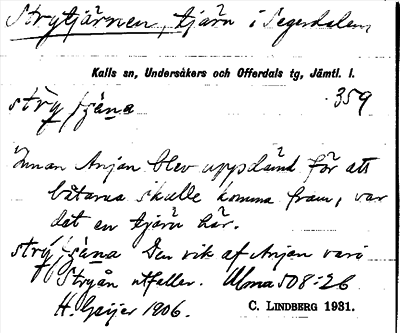 Strytjärnen, tjärn i Segerdalen,
Kalls sn, Undersåkers och Offerdals tg, Jämtl. l.
stry tjäna 359
Innan Anjan blev uppdämd för att
båtarna skulle komma fram, var
det en tjärn här.
stry tjäna Den vik af Anjan vari
Stryån utfaller. Ulma 508:26
H. Geijer 1906. C. LINDBERG 1931.